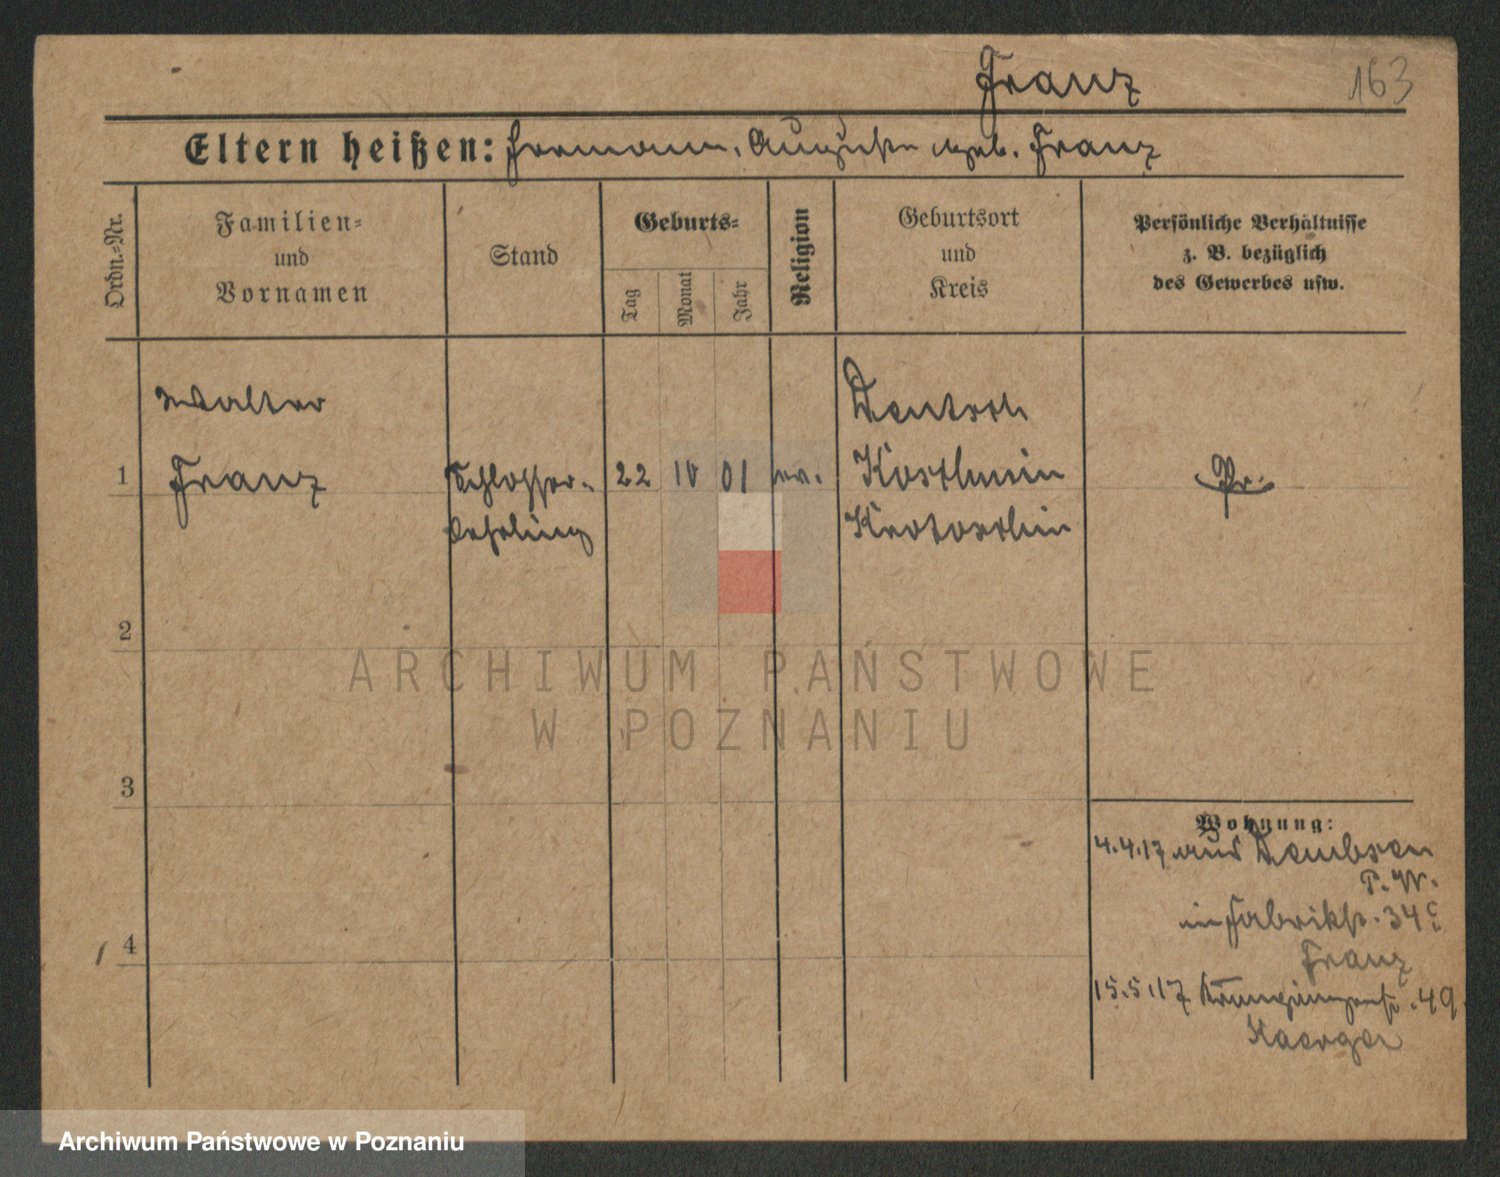 Franz
163
Eltern heißen: Hermann, Auguste geb. Franz
Ordn.-Nr.
Familien-
und
Vornamen
Stand
Geburts-
Tag
Monat
Jahr
Religion
Geburtsort
und
Kreis
Persönliche Verhältnisse
z. B. bezüglich
des Gewerbes usw.
Walter
1 Franz
Schlosser-
Lehrling
22 10 01
ev.
Deutsch
Koschmin
Krotoschin
Pr.
2
3
4
Wohnung:
4.4.17 aus Dembsen
P. W.
in Fabrikst. 34
Franz
15.5.17 49
Kaerger
ARCHIWUM PAŃSTWOWE
W POZNANIU
Archiwum Państwowe w Poznaniu